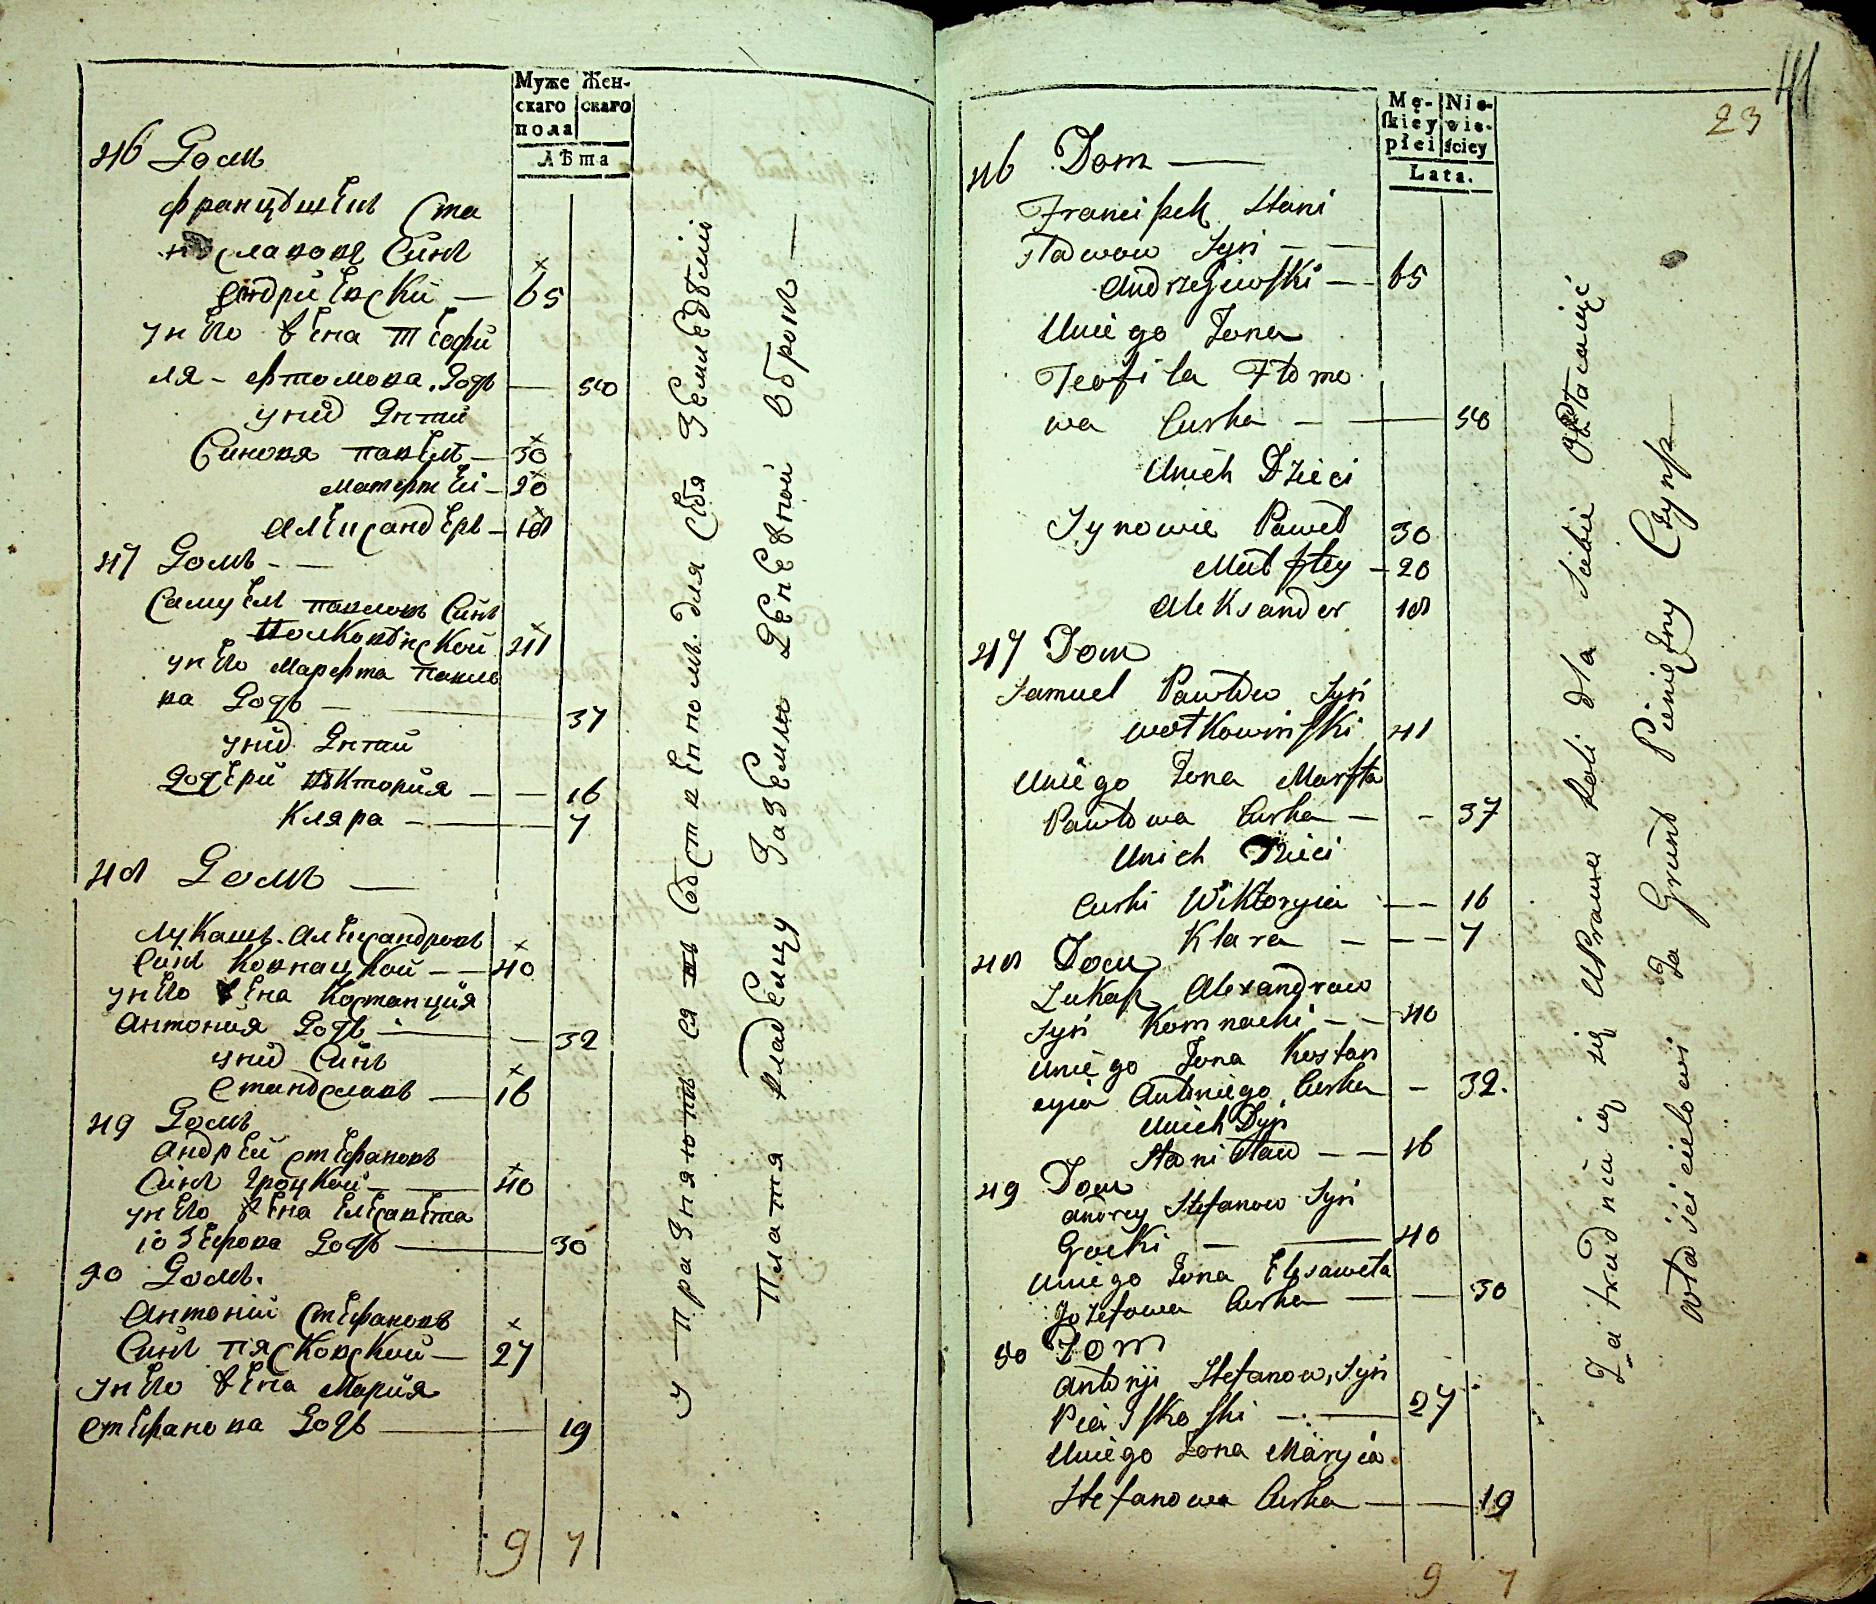 Муже Жен-
скаго скаго
пола
Лѣта
46 Домъ
Францѣшекъ Ста
ниславовъ Синъ
Андриевски — 65
унего Жена Теофи
ля — Фтомова Дочь — 50
унихъ Дѣти
Синовя Павелъ — 30
Матеушей — 20
Александеръ — 18
47 Домъ —
Самуелъ Павловъ Синъ
41
унего Марфта Павло
ва Дочь — 37
унихъ Дѣти
Дочери Виктория — 16
Кляра — 7
48 Домъ —
Лукашъ Александровъ
Синъ Ковнацкой — 40
унего Жена Костанция
Антония Дочь — 32
унихъ Синъ
Станѣславъ — 16
49 Домъ
Андрей Стефановъ
Синъ Гроцкой — 40
унего Жена Елисавета
Іозефова Дочь — 30
50 Домъ.
Антоній Стефановъ
Синъ Пясковской — 27
унего Жена Мария
Стефанова Дочь — 19
9 7
Упражняютъ ся въ Собственномъ для Себя Земледѣліи
Платя владелцу Заземлю Денежной Оброкъ —
41
23
Mę- Nie-
skiey wie-
płci ściey
Lata.
46 Dom —
Franciszek Stani
sławow Syn — —
Andrzejewski — 65
Uniego Zona
Teofila Ftomo
wa Curka — — 50
Unich Dzieci
Synowie Paweł 30
— 20
Aleksander 18
47 Dom
Samuel Pawłow Syn
Wołkowinski 41
Uniego Zona Marfta
Pawłowa Curka — - 37
Unich Dzieci
Curki Wiktoryia — — 16
Klara — — — 7
48 Dom
Łukasz Alexandrow
Syn Kownacki — — 40
Uniego Zona Kostan
cyia Antoniego Curka — 32.
Unich Syn
Stanisław — — 16
49 Dom
Andrey Stefanow Syn
Grocki — — 40
Uniego Zona Elisaweta
Jozefowa Curka — — 30
50 Dom
Antonji Stefanow, Syn
Piaskoski — — 27
Uniego Zona Maryia
Stefanowa Curka — — 19
9 7
Zaitrudniaią się uprawą Roli dla Siebie Opłacaiąć
właścicielowi Za Grunt Pieniężny Czynsz —